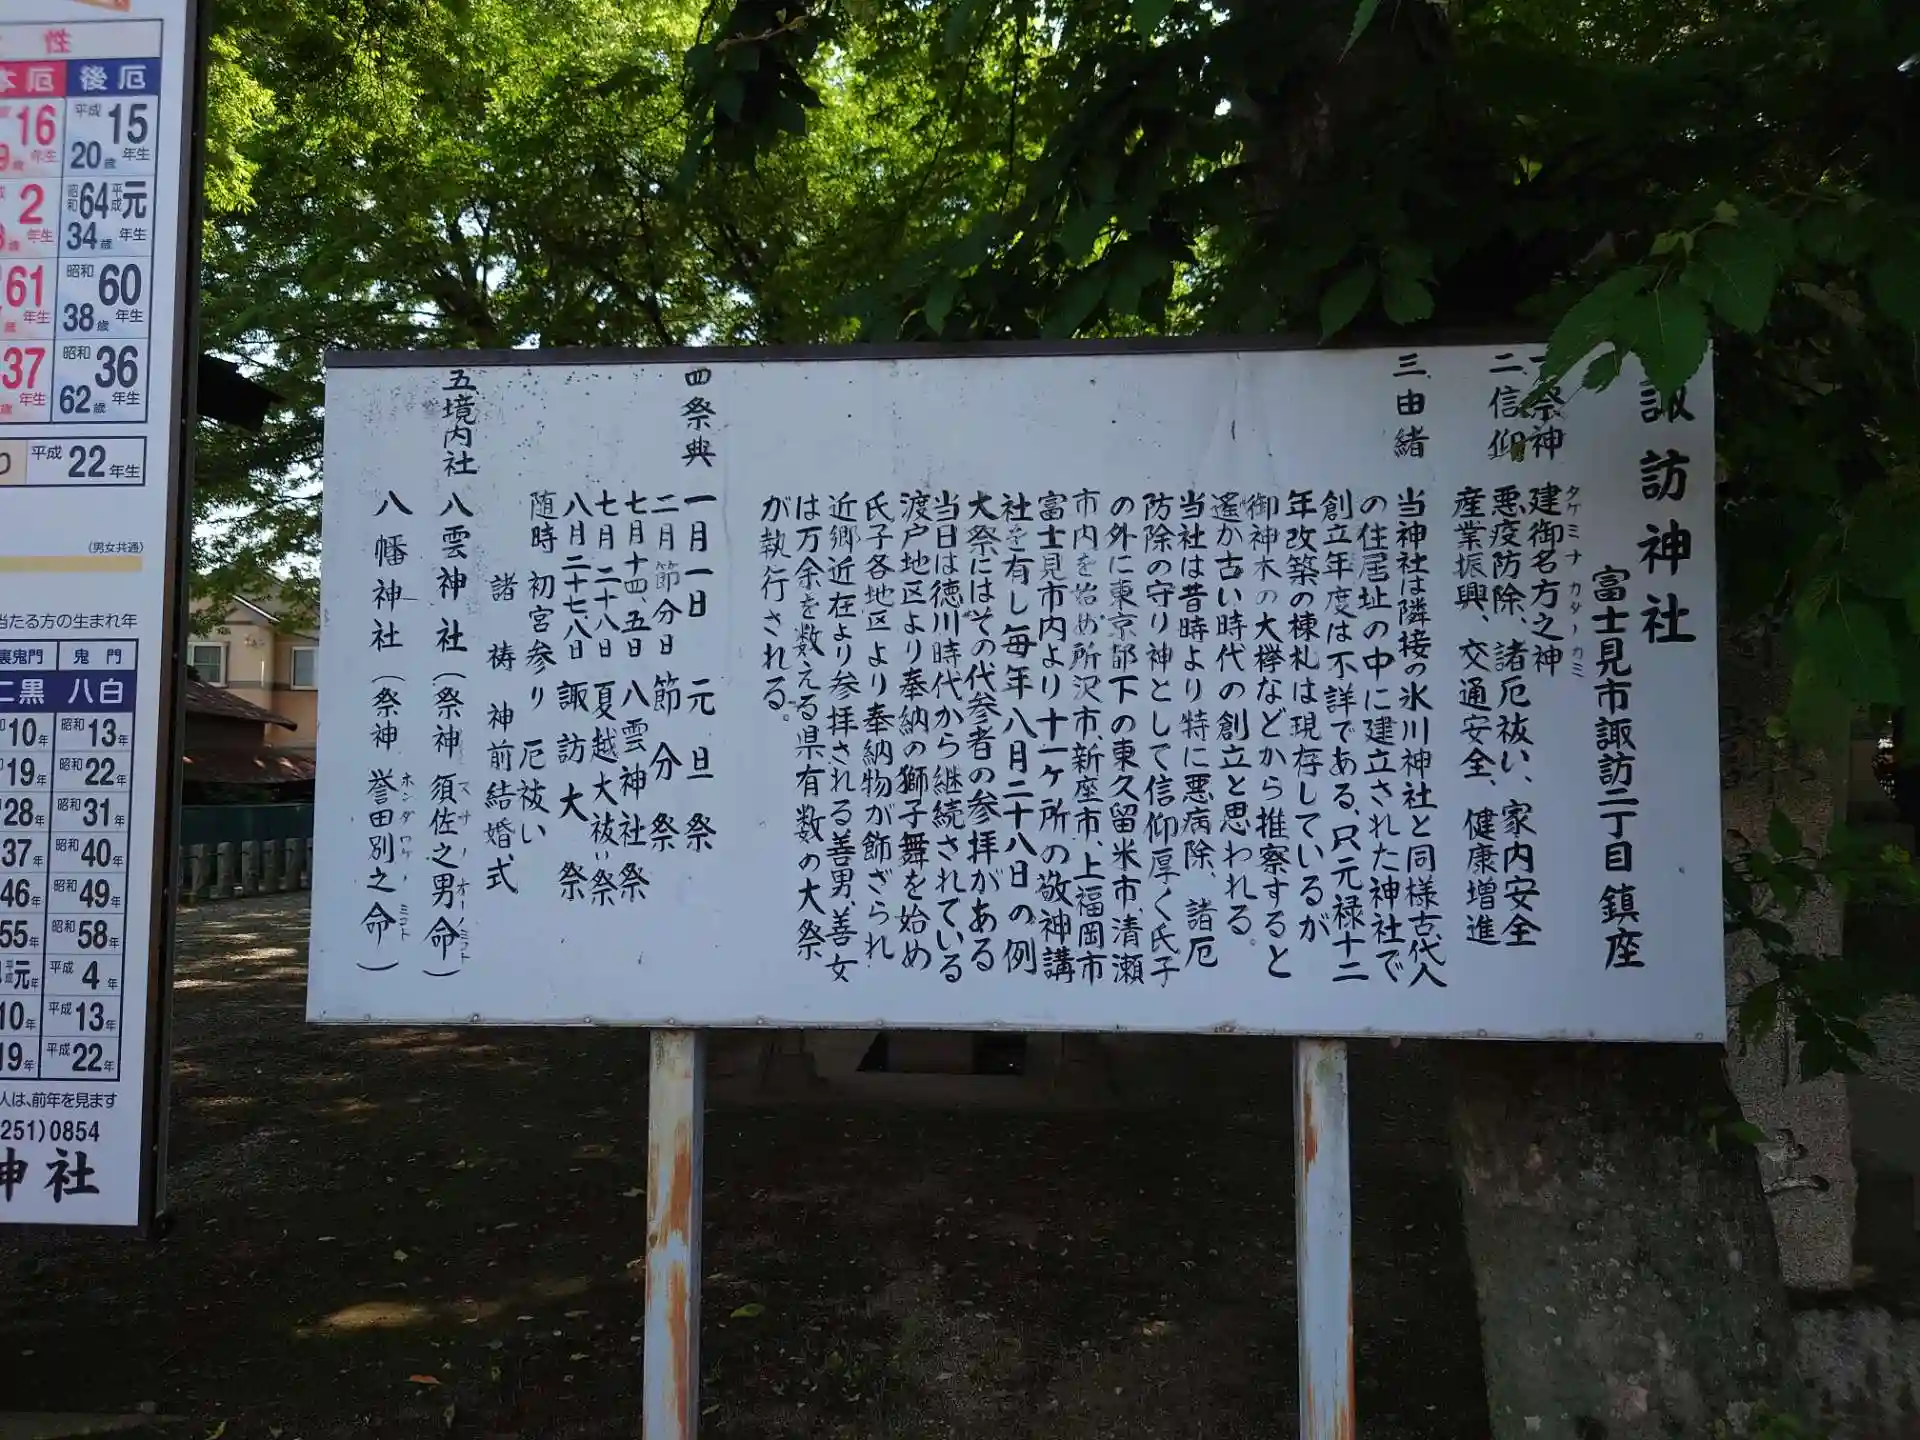 諏訪神社
富士見市諏訪二丁目鎮座
一、祭神 建御名方之神
タケミナカターカミ
二、信仰 悪疫防除、諸厄祓い、家内安全
産業振興、交通安全、健康増進
三、由緒 当神社は隣接の氷川神社と同様古代人
の住居址の中に建立された神社で
創立年度は不詳である、只元禄十二
年改築の棟札は現存しているが
御神木の大欅などから推察すると
遙か古い時代の創立と思われる。
当社は昔時より特に悪病除、諸厄
防除の守り神として信仰厚く氏子
の外に東京都下の東久留米市、清瀬
市内を始め所沢市、新座市、上福岡市
富士見市内より十一ヶ所の敬神講
社を有し毎年八月二十八日の例
大祭にはその代参者の参拝がある
当日は徳川時代から継続されている
渡戸地区より奉納の獅子舞を始め
氏子各地区より奉納物が飾ざられ
近郷近在より参拝される善男、善女
は万余を数える県有数の大祭
が執行される。
四 祭典 一月一日 元旦祭
二月節分日 節分祭
七月十四、五日 八雲神社祭
七月二十八日 夏越大祓い祭
八月二十七八日 諏訪大祭
随時 初宮参り 厄祓い
諸祷 神前結婚式
五 境内社 八雲神社（祭神 須佐之男命）
スサノオーノミコト
八幡神社（祭神 誉田別之命）
ホンダワケノミコト
性
本厄 後厄
16 年生 平成15年生
20歳
2 年生 昭和64 平成元年生
34歳
61 年生 昭和60年生
38歳
37 年生 昭和36年生
62歳
平成22年生
（男女共通）
当たる方の生まれ年
裏鬼門 鬼門
二黒 八白
10年 昭和13年
19年 昭和22年
28年 昭和31年
37年 昭和40年
46年 昭和49年
55年 昭和58年
平成元年 平成4年
10年 平成13年
19年 平成22年
人は、前年を見ます
251)0854
神社